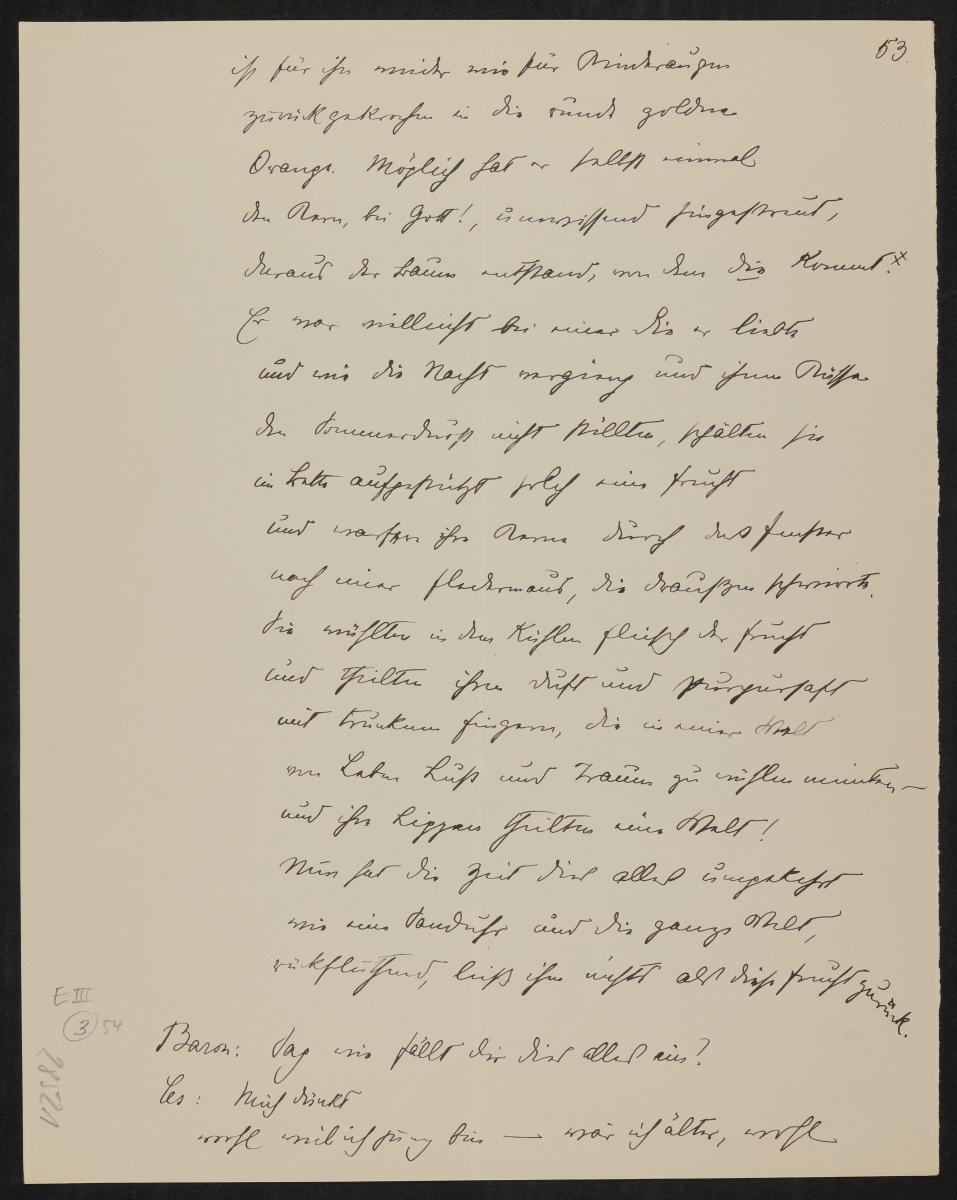 53.
ist für ihn wieder wie für Kinderaugen
zurückgekrochen in die runde goldne
Orange. Möglich hat er selbst einmal
den Kern, bei Gott!, unwissend hingestreut,
daraus der Baum entstand, von dem die kommt.x
Er war vielleicht bei einer die er liebte
und wie die Nacht vergieng und ihnen Küsse
den Sommerdurst nicht stillten, schälten sie
im Bette aufgestützt solch eine Frucht
und warfen ihre Kerne durch das Fenster
nach einer Fledermaus, die draußen schwirrte.
Sie wühlten in dem kühlen Fleisch der Frucht
und theilten ihren Duft und Purpursaft
mit trunknen Fingern, die in einer Welt
von Leben Lust und Traum zu wühlen meinten –
und ihre Lippen theilten eine Welt!
Nun hat die Zeit dies alles umgekehrt
wie eine Sanduhr und die ganze Welt,
rückfluthend, ließ ihm nichts als diese Frucht zurück.
Baron: Sag wie fällt dir dies alles ein?
Ces: Mich dünkt
wohl weil ich jung bin — wär ich älter, wohl
E III
3 54